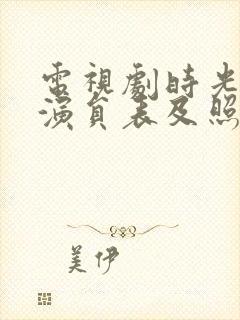 電視劇時光
演員表及照
美伊